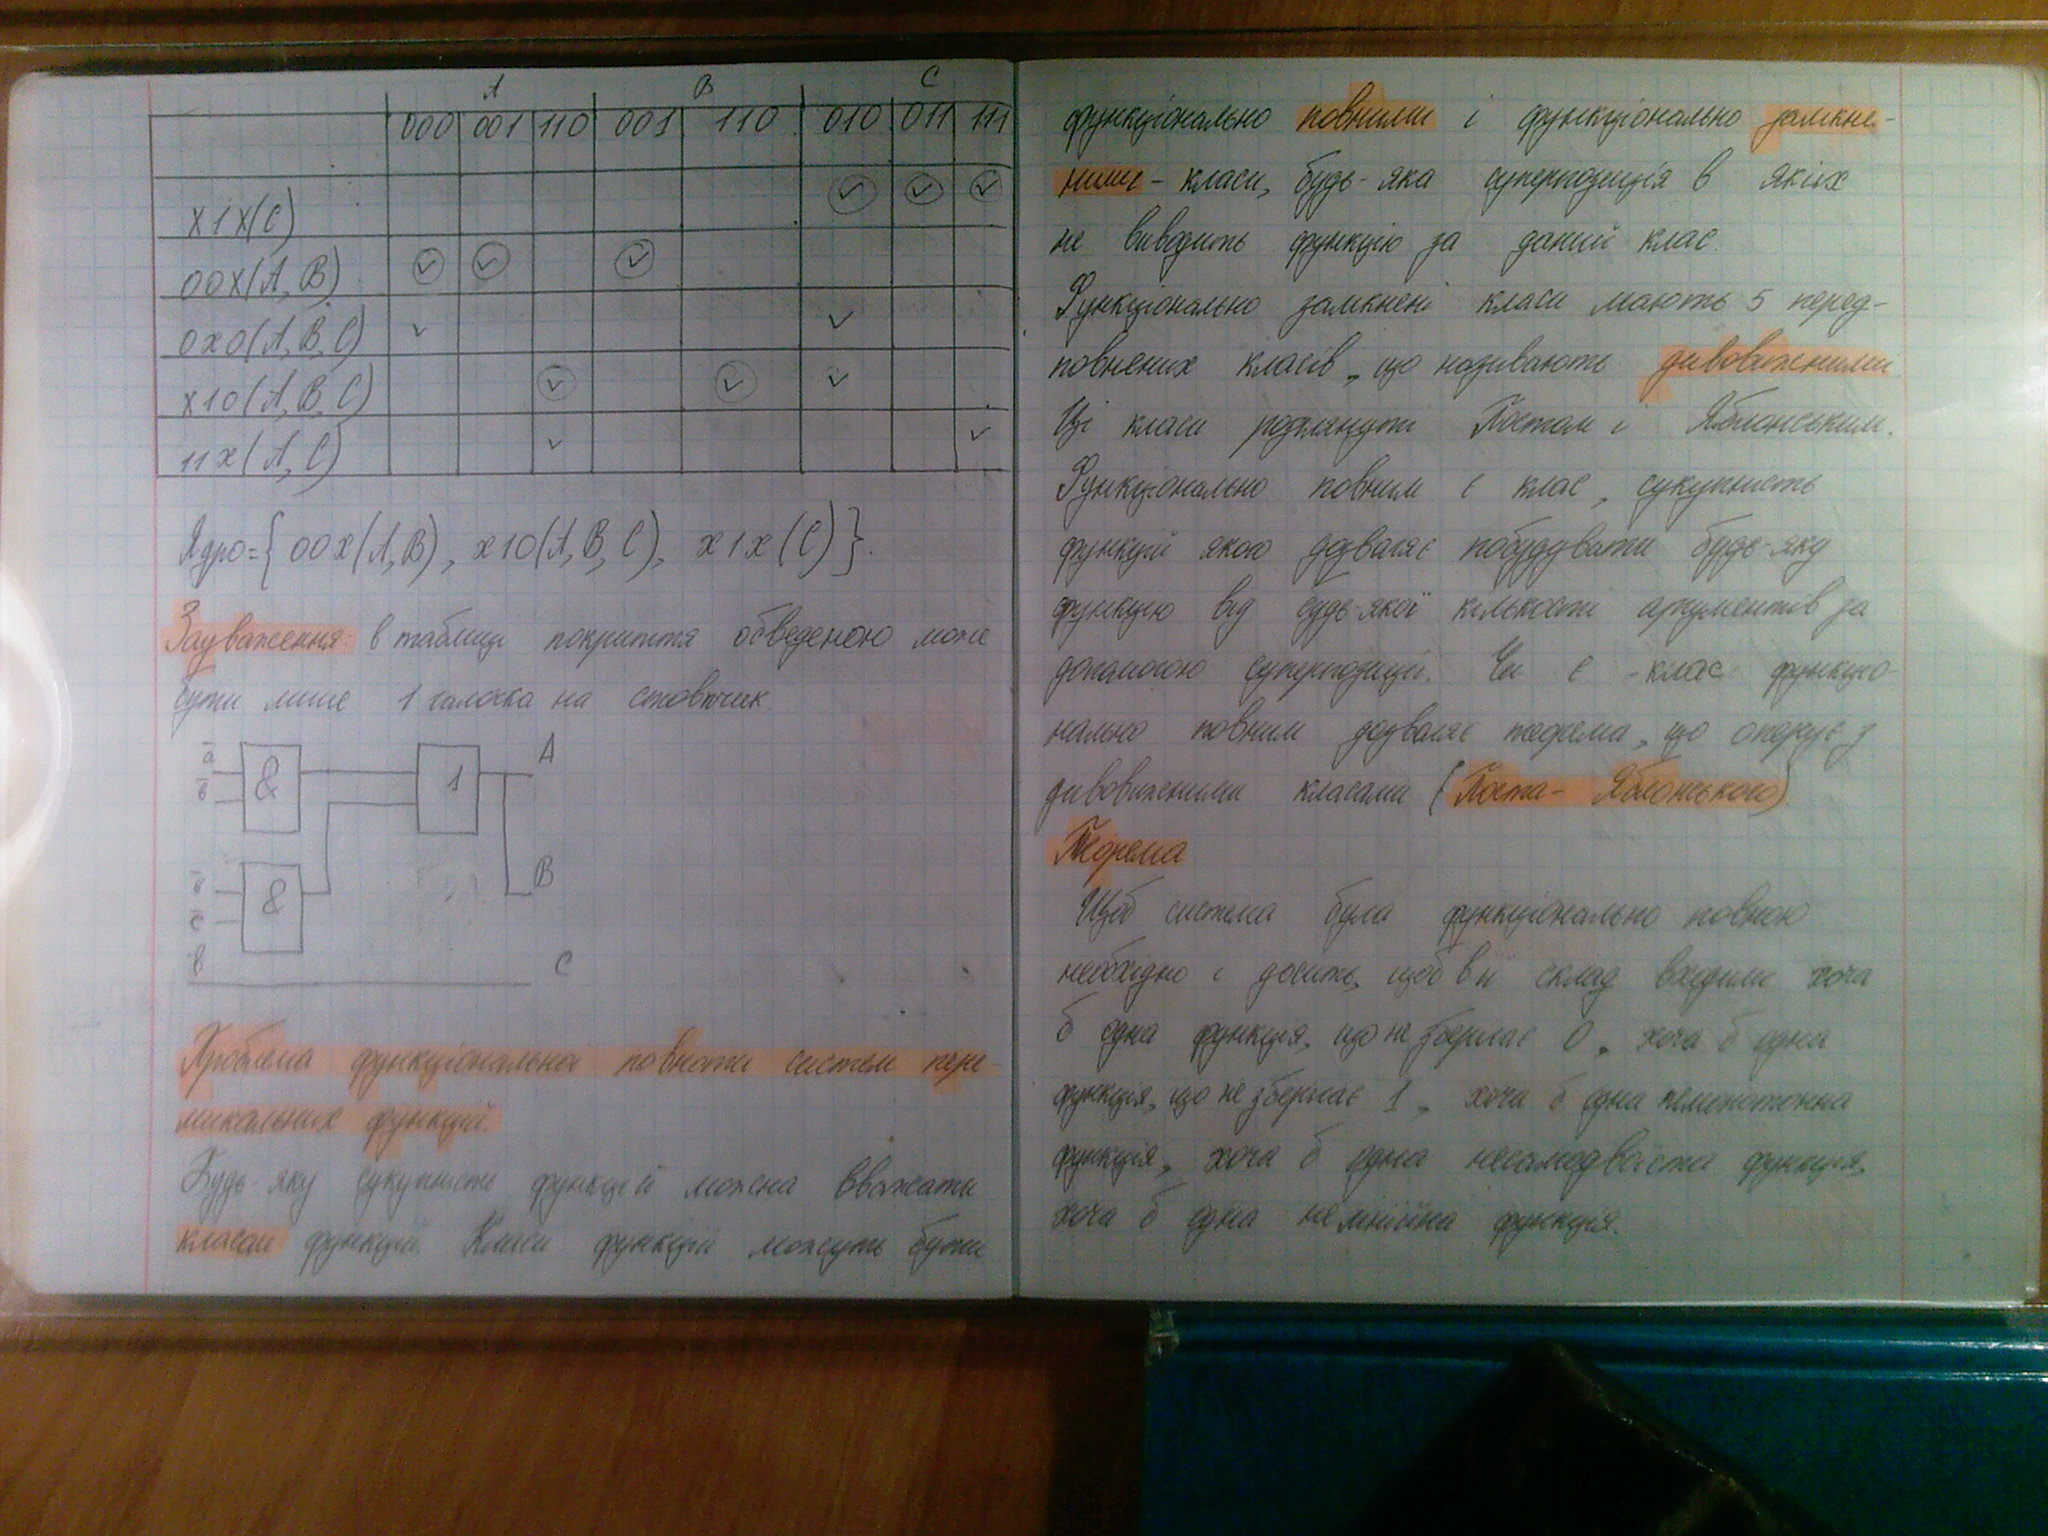 A B C
000 001 110 001 110 010 011 111
x1x(C) ✓ ✓ ✓
00x(A,B) ✓ ✓ ✓
0x0(A,B,C) ✓ ✓
x10(A,B,C) ✓ ✓ ✓
11x(A,C) ✓ ✓
Ядро={00x(A,B), x10(A,B,C), x1x(C)}.
Зауваження: в таблиці покриття обведеною може
бути лише 1 галочка на стовпчик.
a̅ & 1 A
в̅
в̅ & B
c̅
в C
Проблема функціональної повноти систем пере-
микальних функцій.
Будь-яку сукупність функцій можна вважати
класом функцій. Класи функцій можуть бути
функціонально повними і функціонально замкне-
ними - класи, будь-яка суперпозиція в яких
не виводить функцію за даний клас.
Функціонально замкнені класи мають 5 перед-
повнених класів, що називають дивовижними.
Ці класи розглянуті Постом і Яблонським.
Функціонально повним є клас, сукупність
функцій якого дозволяє побудувати будь-яку
функцію від будь-якої кількості аргументів за
допомогою суперпозиції. Чи є клас функціо-
нально повним дозволяє теорема, що оперує з
дивовижними класами (Поста - Яблонського)
Теорема
Щоб система була функціонально повною
необхідно і досить, щоб в її склад входили хоча
б одна функція, що не зберігає 0, хоча б одна
функція, що не зберігає 1, хоча б одна немонотонна
функція, хоча б одна несамодвоїста функція,
хоча б одна нелінійна функція.